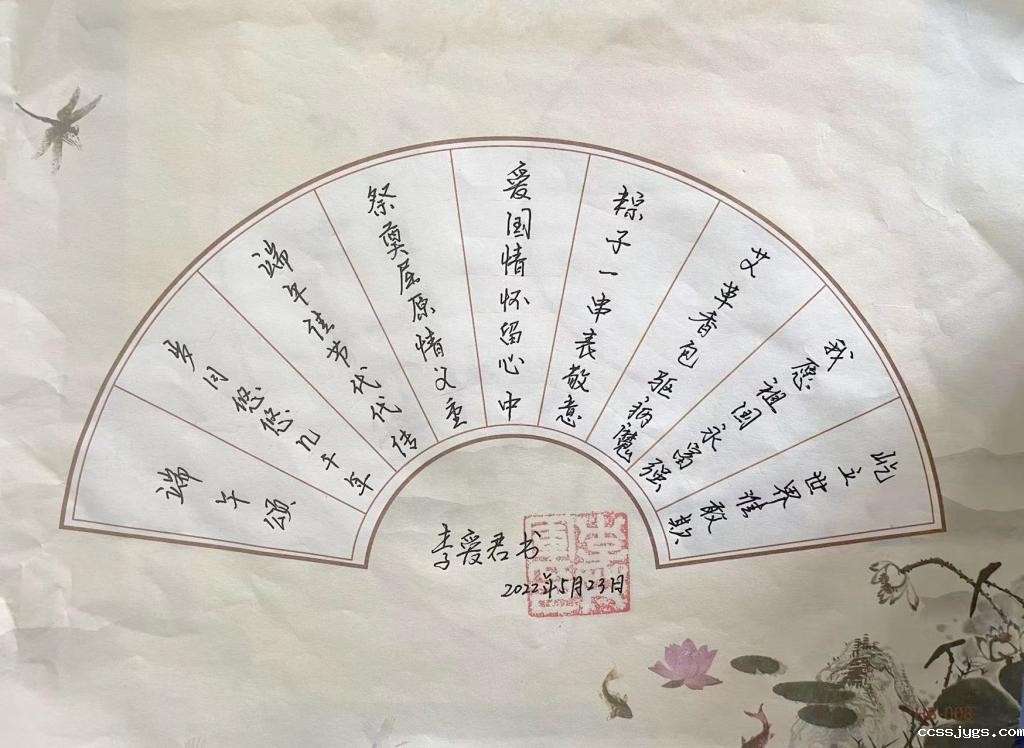 端午颂
岁月悠悠几千年
端午佳节代代传
祭奠屈原情义重
爱国情怀留心中
粽子一串表敬意
艾草香包驱病魔
我愿祖国永富强
屹立世界谁敢欺
李爱君书
2022年5月23日
008
ccssjygs.com